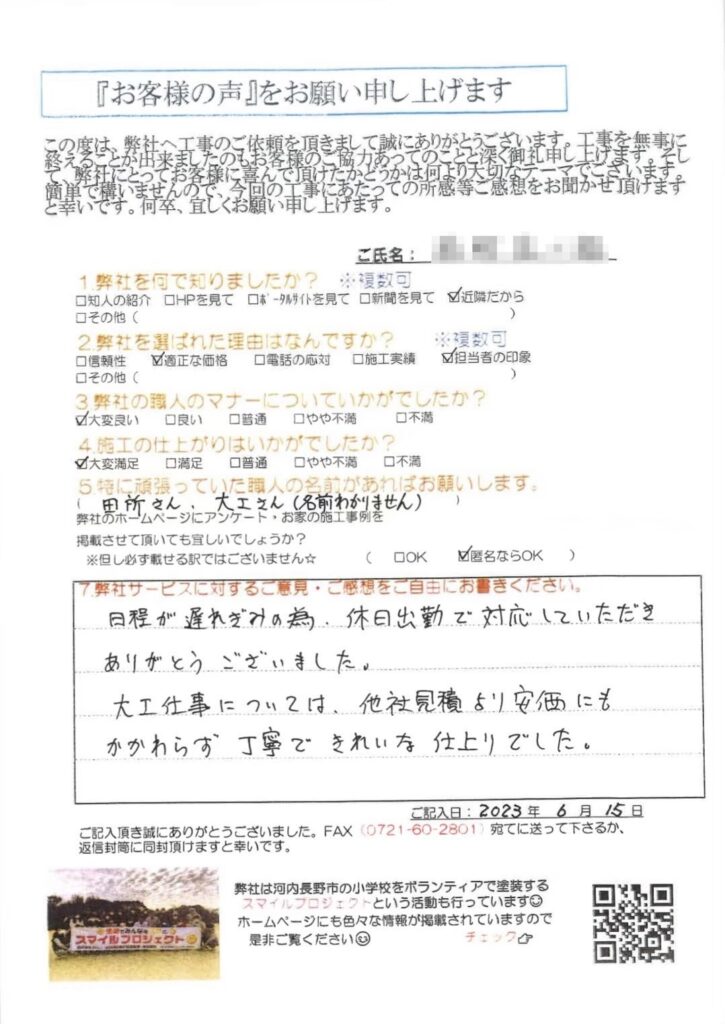 『お客様の声』をお願い申し上げます
この度は、弊社へ工事のご依頼を頂きまして誠にありがとうございます。工事を無事に
終えることが出来ましたのもお客様のご協力あってのことと深く御礼申し上げます。そし
て、弊社にとってお客様に喜んで頂けたかどうかは何より大切なテーマでございます。
簡単で構いませんので、今回の工事にあたっての所感等ご感想をお聞かせ頂けます
と幸いです。何卒、宜しくお願い申し上げます。
ご氏名：
1.弊社を何で知りましたか？ ※複数可
□知人の紹介 □HPを見て □ﾎﾟｰﾀﾙサイトを見て □新聞を見て ☑近隣だから
□その他（ ）
2.弊社を選ばれた理由はなんですか？ ※複数可
□信頼性 ☑適正な価格 □電話の応対 □施工実績 ☑担当者の印象
□その他（ ）
3.弊社の職人のマナーについていかがでしたか？
☑大変良い □良い □普通 □やや不満 □不満
4.施工の仕上がりはいかがでしたか？
☑大変満足 □満足 □普通 □やや不満 □不満
5.特に頑張っていた職人の名前があればお願いします。
（ 田所さん、大工さん(名前わかりません) ）
弊社のホームページにアンケート・お家の施工事例を
掲載させて頂いても宜しいでしょうか？
※但し必ず載せる訳ではございません☆ （ □OK ☑匿名ならOK ）
7.弊社サービスに対するご意見・ご感想をご自由にお書きください。
日程が遅れぎみの為、休日出勤で対応していただき
ありがとうございました。
大工仕事については、他社見積より安価にも
かかわらず丁寧できれいな仕上りでした。
ご記入日：2023年 6月 15日
ご記入頂き誠にありがとうございました。FAX（0721-60-2801）宛てに送って下さるか、
返信封筒に同封頂けますと幸いです。
弊社は河内長野市の小学校をボランティアで塗装する
スマイルプロジェクトという活動も行っています☺
ホームページにも色々な情報が掲載されていますので
是非ご覧ください☺ チェック☞
スマイルプロジェクト